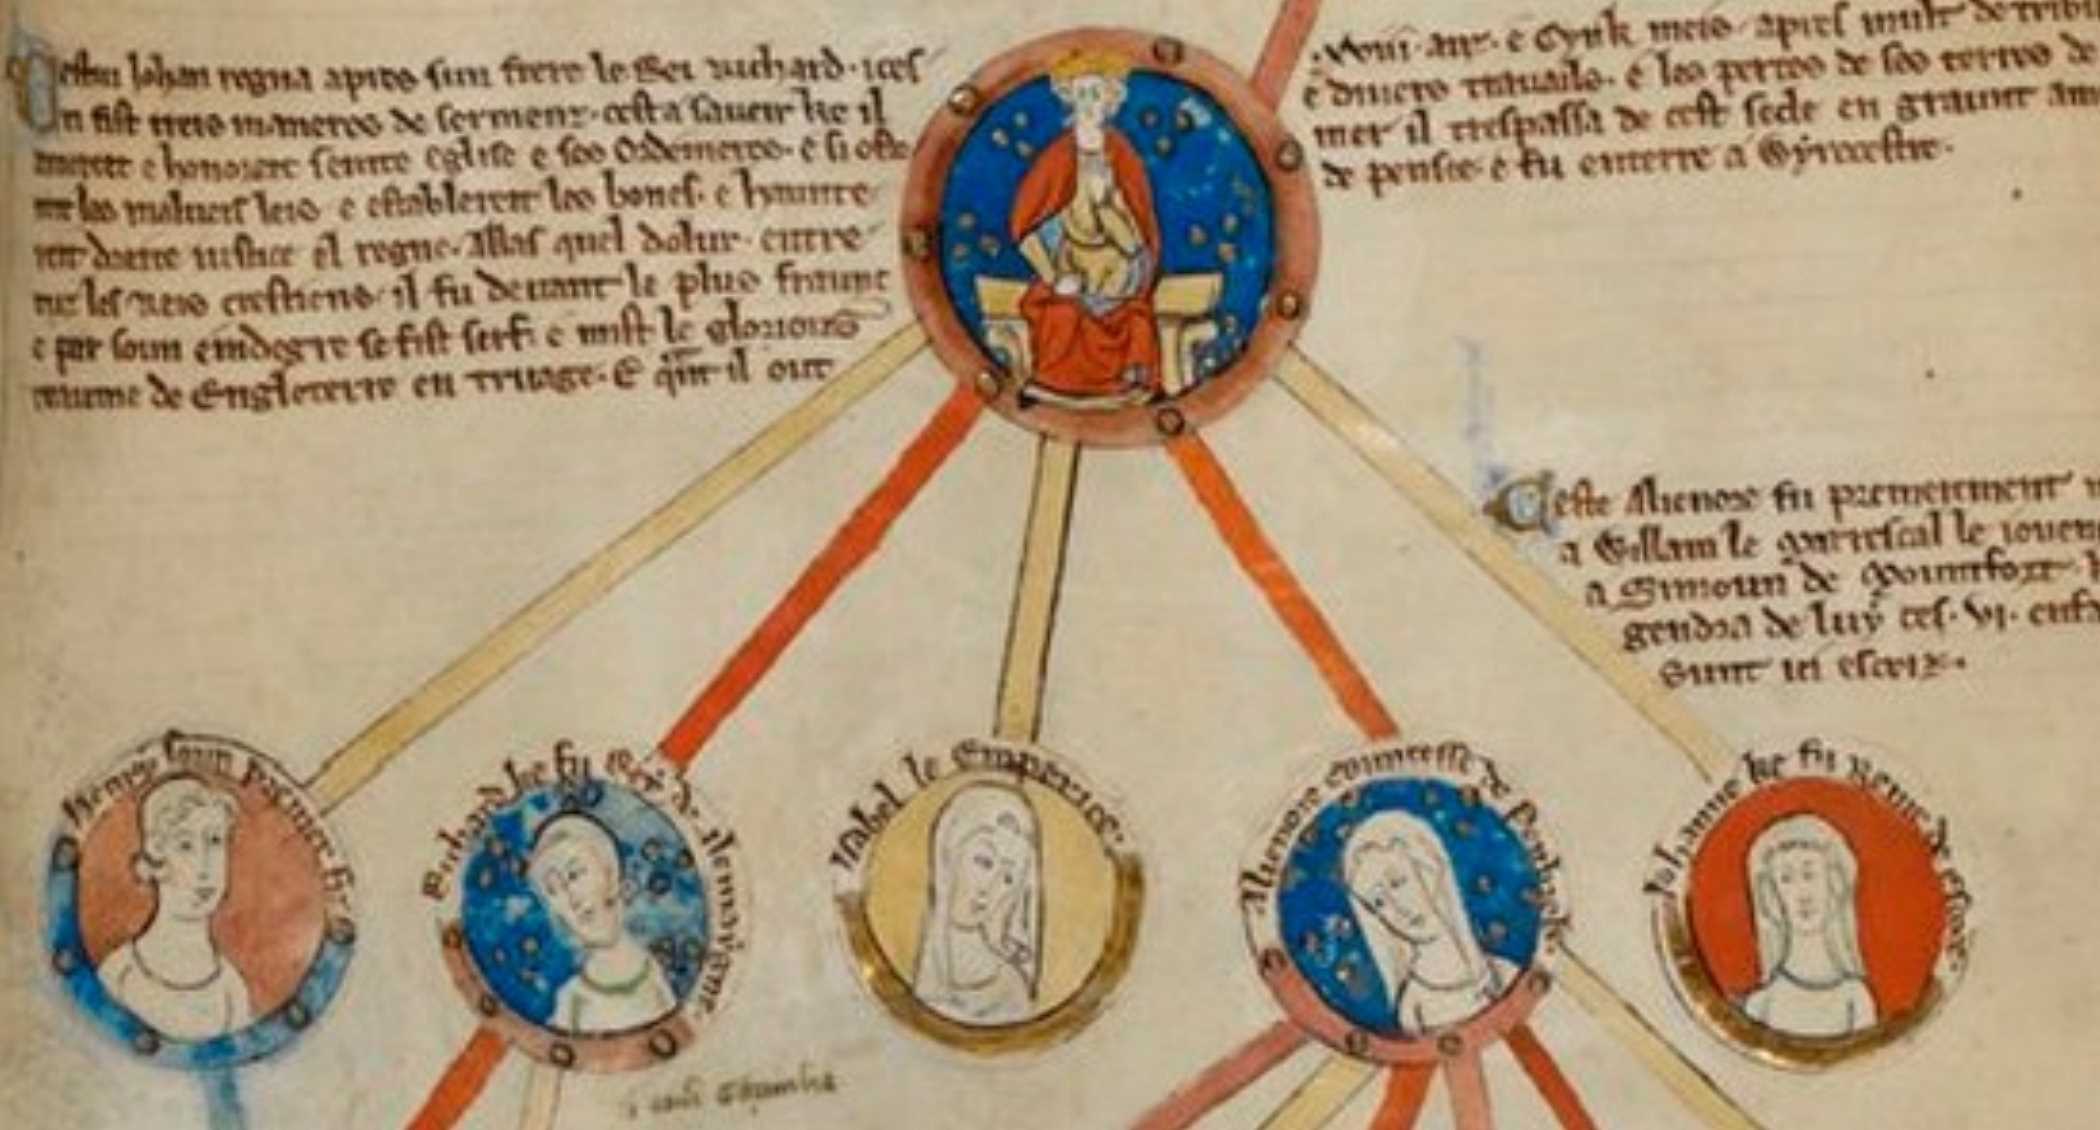 Cestui Johan regna apres sun frere le Rei Richard. ices
en fist treis maneres de sermenz. cest a saueir ke il
e honorer seinte eglise e ses Ordeneires. e si oste
les malueis leis. e establereit les bones. e
dreite iustice el regne. Allas quel dolur. entre
les reis crestiens. il fu deuant le plus fraunc
e par soun eindegre se fist serf. e mist le glorious
reaume de Engleterre en truage. E qant il out
.xviii. anz. e Cynk meis. apres mult de
e diuers trauails. e les pertes de ses terres de
mer il trespassa de cest secle en graunt
de pensee. e fu enterre a Wyrecestre.
Ceste Alienore fu premerement
a Willam le Marescal le iouen
a Simoun de Mountfort.
gendra de luy ces. vi. enfa
Sunt ici escriz.
Henri soun primer fiz
Richard ke fu Rey de Alemayne.
Isabel le Emperice.
Alienore cuntesse de Penbrok.
Johanne ke fu Reine de escoce.